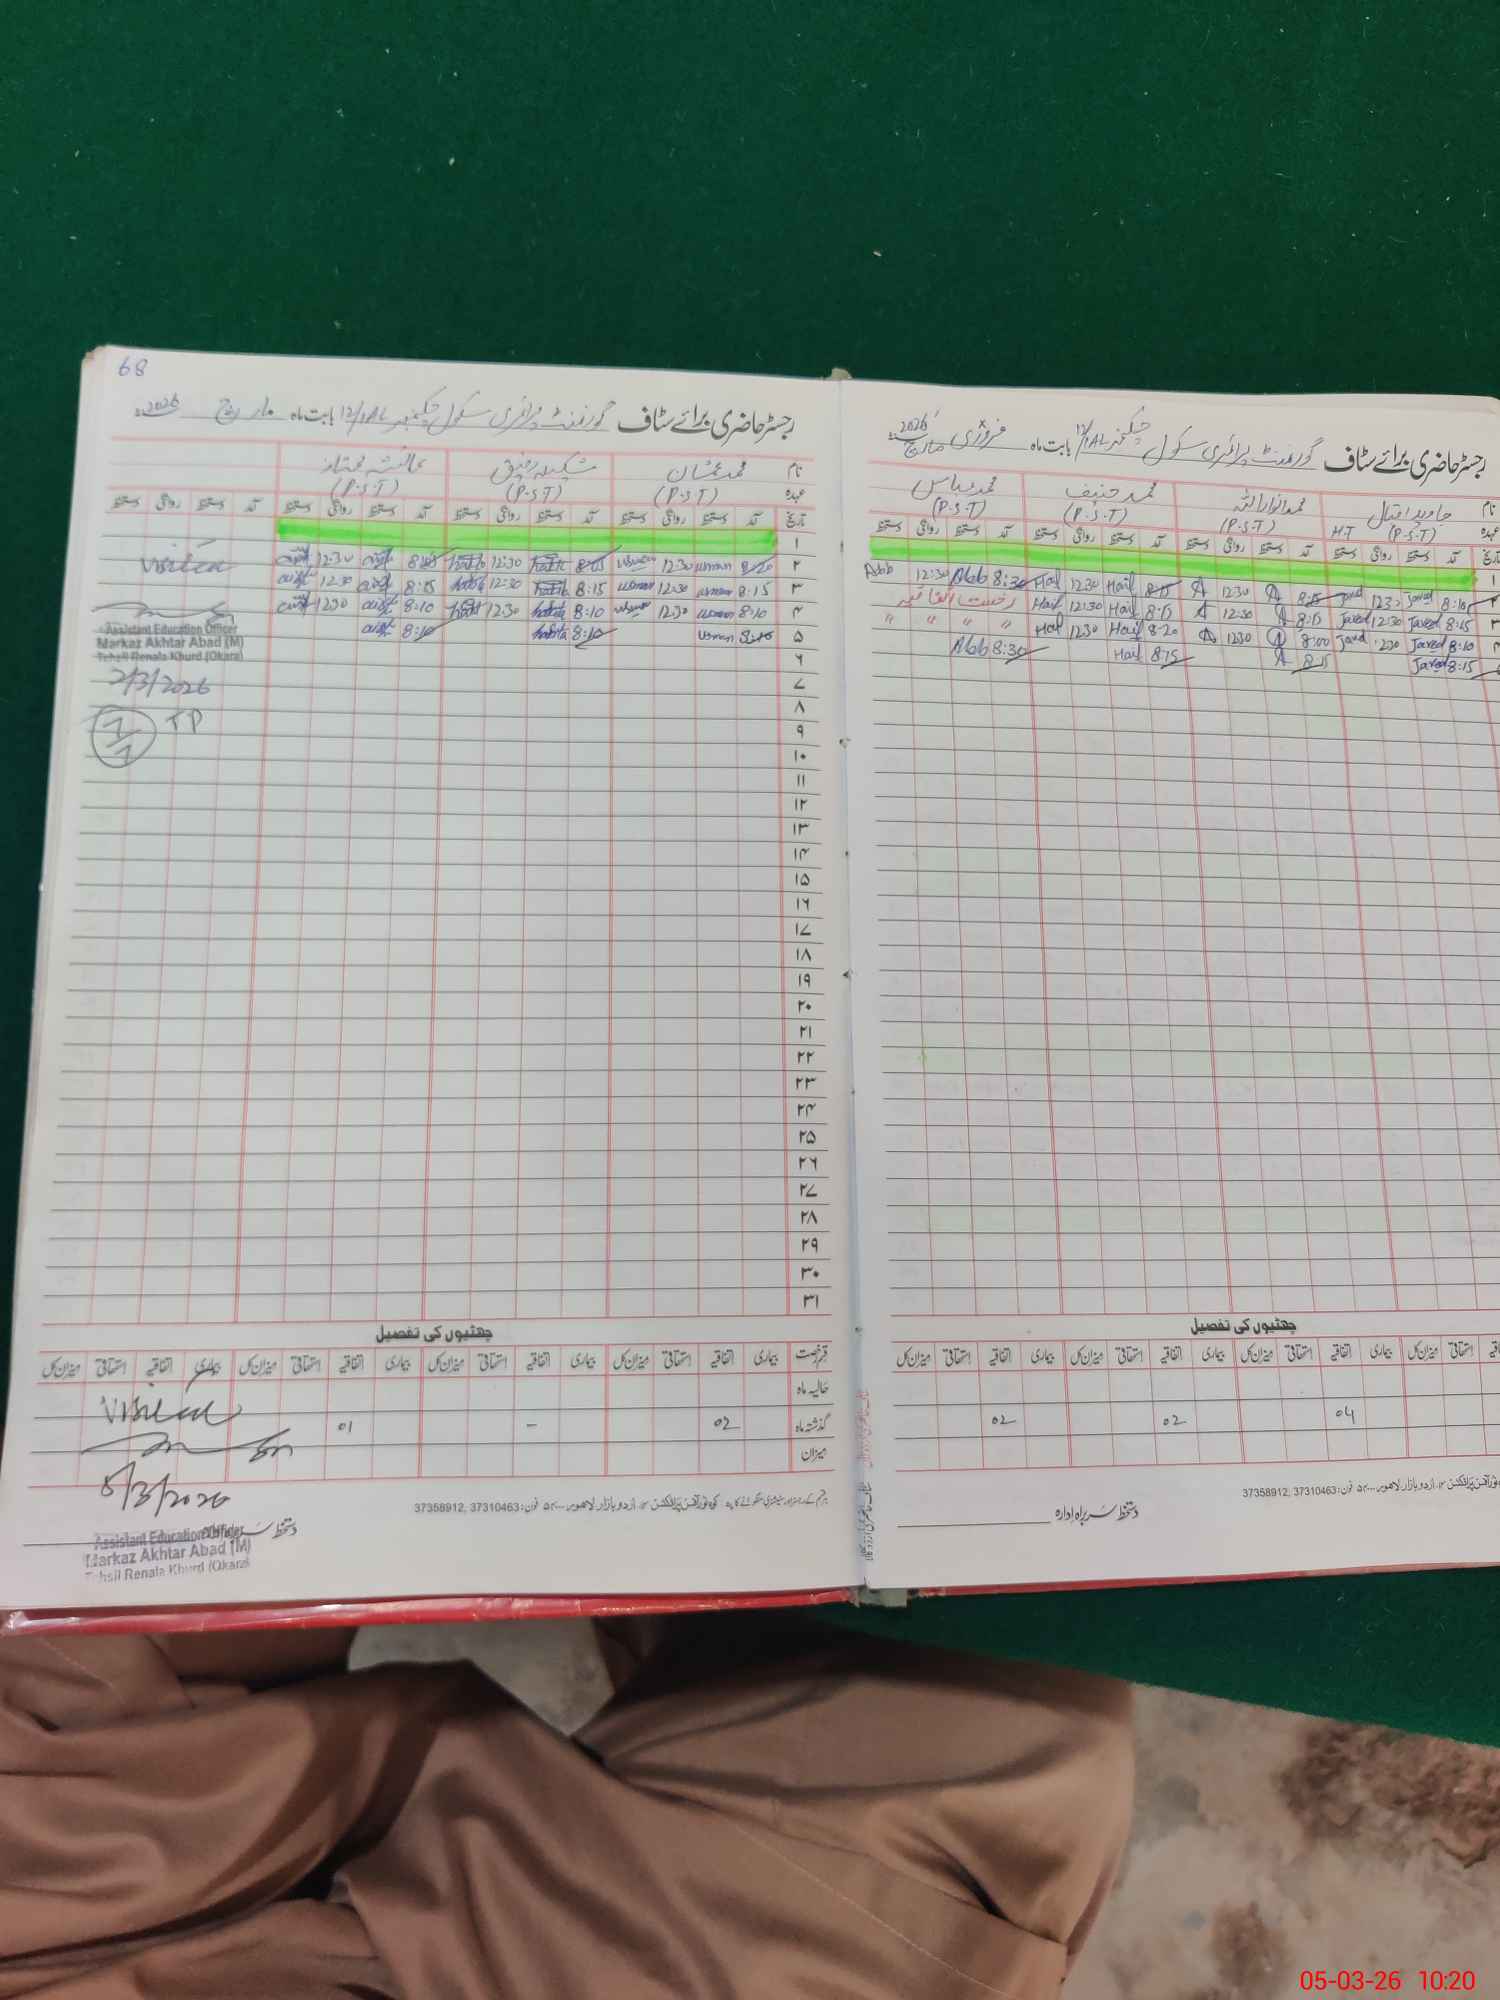 68
رجسٹر حاضری برائے سٹاف گورنمنٹ پرائمری سکول چکنمبر 12/1AL بابت ماہ مارچ 2026
نام محمد عثمان شکیلہ رفیق عائشہ ممتاز
عہدہ (P.S.T) (P.S.T) (P.S.T)
تاریخ آمد دستخط روانگی دستخط آمد دستخط روانگی دستخط آمد دستخط روانگی دستخط آمد دستخط روانگی دستخط
۱
۲ 8:20 usman 12:30 usman 8:05 12:30 8:05 12:30
۳ 8:15 usman 12:30 usman 8:15 12:30 8:15 12:30
۴ 8:10 usman 12:30 usman 8:10 12:30 8:10 12:30
۵ usman 8:10 8:10
۶
۷
۸
۹
۱۰
۱۱
۱۲
۱۳
۱۴
۱۵
۱۶
۱۷
۱۸
۱۹
۲۰
۲۱
۲۲
۲۳
۲۴
۲۵
۲۶
۲۷
۲۸
۲۹
۳۰
۳۱
Visited
Assistant Education Officer
Markaz Akhtar Abad (M)
Tehsil Renala Khurd (Okara)
2/3/2026
7/7 TP
چھٹیوں کی تفصیل
قسم رخصت بیماری اتفاقیہ استحقاقی میزان کل بیماری اتفاقیہ استحقاقی میزان کل بیماری اتفاقیہ استحقاقی میزان کل بیماری اتفاقیہ استحقاقی میزان کل
حالیہ ماہ
گذشتہ ماہ 02 - 01
میزان
Visited
5/3/2026
اردو بازار لاہور فون: 37310463, 37358912
دستخط سربراہ ادارہ
Assistant Education Officer
Markaz Akhtar Abad (M)
Tehsil Renala Khurd (Okara)
رجسٹر حاضری برائے سٹاف گورنمنٹ پرائمری سکول چکنمبر 12/1AL بابت ماہ فروری مارچ 2026
نام جاوید اقبال محمد انوار اللہ محمد حنیف محمد عباس
عہدہ (P.S.T) H.T (P.S.T) (P.S.T) (P.S.T)
تاریخ آمد دستخط روانگی دستخط آمد دستخط روانگی دستخط آمد دستخط روانگی دستخط آمد دستخط روانگی دستخط
۱
۲ 8:10 Javed 12:30 Javed 8:15 A 12:30 A 8:15 Hanif 12:30 Hanif 8:30 12:30
۳ 8:15 Javed 12:30 Javed 8:15 A 12:30 A 8:15 Hanif 12:30 Hanif رخصت اتفاقیہ
۴ 8:10 Javed 12:30 Javed 8:00 A 12:30 A 8:20 Hanif 12:30 Hanif " " " "
8:15 Javed 8:15 A 8:15 Hanif 8:30
چھٹیوں کی تفصیل
اتفاقیہ استحقاقی میزان کل بیماری اتفاقیہ استحقاقی میزان کل بیماری اتفاقیہ استحقاقی میزان کل بیماری اتفاقیہ استحقاقی میزان کل
04 02 02
اردو بازار لاہور فون: 37310463, 37358912
دستخط سربراہ ادارہ
05-03-26 10:20